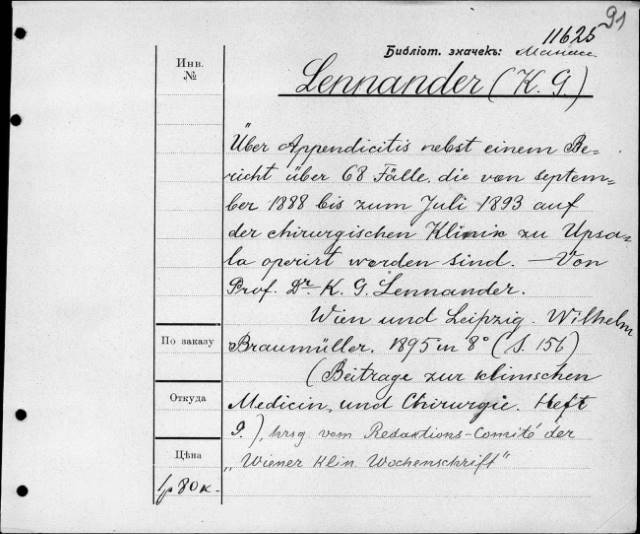 91
11625
Библіот. значекъ:
Инв.
№
Lennander (K. G)
Über Appendicitis nebst einem Be-
richt über 68 Fälle, die von septem-
ber 1888 bis zum Juli 1893 auf
der chirurgischen Klinik zu Upsa-
la operirt worden sind. — Von
Prof. Dr. K. G. Lennander.
Wien und Leipzig. Wilhelm
По заказу
Braumüller. 1895 in 8° (S. 156)
(Beitrage zur klinischen
Откуда
Medicin, und Chirurgie. Heft
9.), hrsg vom Redaktions-Comité der
Цѣна
„Wiener klin. Wochenschrift"
1р 80к.